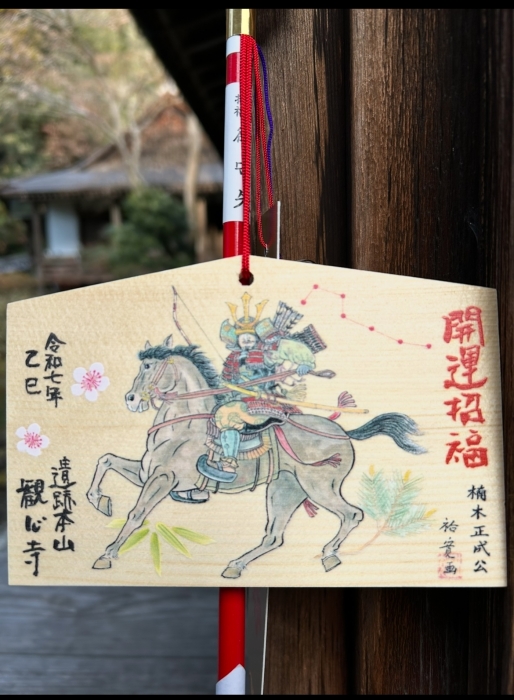 開運招福
楠木正成公
祐寛画
令和七年
乙巳
遺跡本山
観心寺